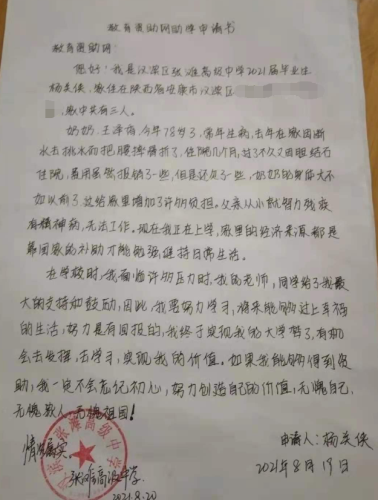 教育资助网助学申请书
教育资助网：
您好！我是汉滨区张滩高级中学2021届毕业生
杨关侠，家住在陕西省安康市汉滨区
家中共有三人。
奶奶，王泽梅，今年78岁了，常年生病，去年在家因断
水去挑水而把腰摔骨折了，住院几个月，过了不久又因胆结石
住院，虽国家报销了一些，但是还欠了一些，奶奶的身体大不
如以前了，这给家里增加了许多负担。父亲从小就智力残疾
有精神病，无法工作。现在我正在上学，家里的经济来源都是
靠国家的补助才能勉强维持日常生活。
在学校时，我面临许多压力时，我的老师，同学给了我最
大的支持和鼓励，因此，我要努力学习，将来能够过上幸福
的生活，努力是有回报的，我终于实现我的大学梦了，有机
会去发挥，去学习，实现我的价值。如果我能够得到资
助，我一定不会忘记初心，努力创造自己的价值，无愧自己，
无愧家人，无愧祖国！
情况属实。
张滩高级中学
2021.8.20
申请人：杨关侠
2021年8月19日